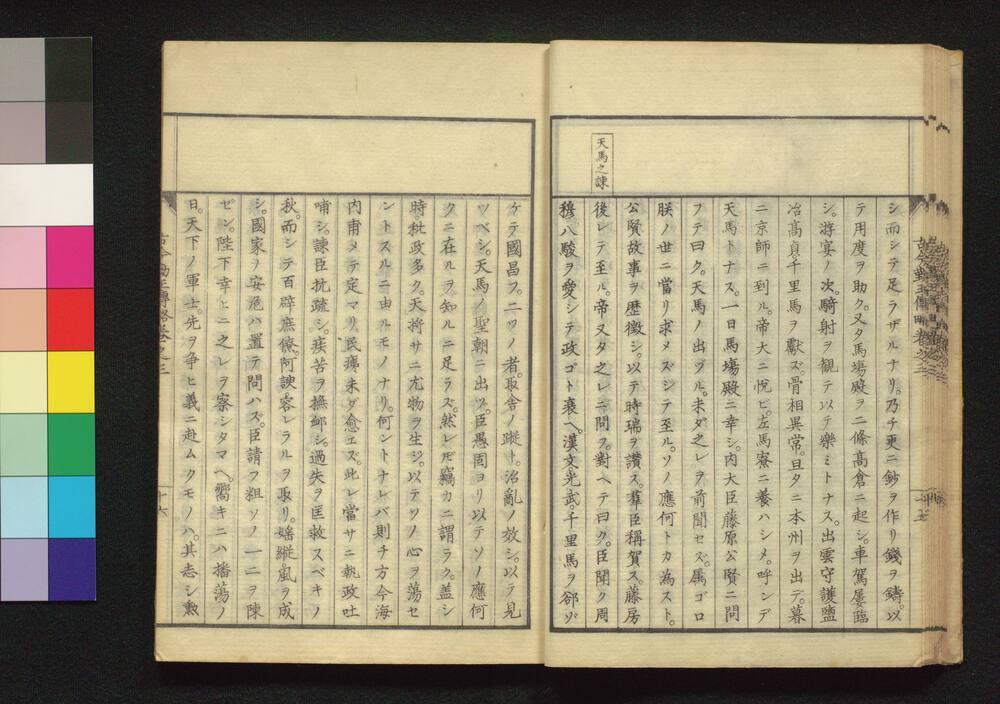 天馬之諫
シ而シテ足ラザルナリ。乃チ更ニ鈔ヲ作リ錢ヲ鑄。以
テ用度ヲ助ク。又タ馬塲殿ヲ二條高倉ニ起シ。車駕屢臨
シ。游宴ノ次。騎射ヲ観テ以テ樂ミトナス。出雲守護鹽
冶高貞。千里馬ヲ獻ズ。骨相異常。旦タニ本州ヲ出デ。暮
ニ京師ニ到ル。帝大ニ悅ビ。左馬寮ニ養ハシメ。呼ンデ
天馬トナス。一日馬塲殿ニ幸シ。内大臣藤原公賢ニ問
フテ曰ク。天馬ノ出ヅル。未ダ之レヲ前聞セズ。属ゴロ
朕ノ世ニ當リ求メズシテ至ル。ソノ應何トカ為スト。
公賢故事ヲ歴徵シ。以テ時瑞ヲ讃ス。羣臣稱賀ス。藤房
後レテ至ル。帝又タ之レニ問フ。對ヘテ曰ク。臣聞ク周
穆八駿ヲ愛シテ政ゴト衰ヘ。漢文光武。千里馬ヲ郤ゾ
ケテ國昌フ。二ツノ者。取舎ノ蹤ト。治亂ノ效シ。以テ見
ツベシ。天馬ノ聖朝ニ出ヅ。臣愚固ヨリ以テソノ應何
クニ在ルヲ知ルニ足ラズ。然レ𪜈竊カニ謂ラク。盖シ
時。秕政多ク。天將サニ尤物ヲ生ジ。以テソノ心ヲ蕩セ
ントスルニ由ルモノナリ。何ントナレバ則チ方今海
内甫メテ定マリ。民痍未ダ愈エズ。此レ當サニ執政吐
哺シ。諫臣抗疏シ。疾苦ヲ撫䘏シ。過失ヲ匡救スベキノ
秋。而シテ百辟庶僚。阿諛容レラルヲ取リ。婾縱風ヲ成
シ。國家ノ安危ハ置テ問ハズ。臣請フ粗ソノ一二ヲ陳
ゼン。陛下幸ヒニ之レヲ察シタマヘ。嚮キニハ播蕩ノ
日。天下ノ軍士。先ヲ争ヒ義ニ赴ムクモノハ。其志シ勲
十六